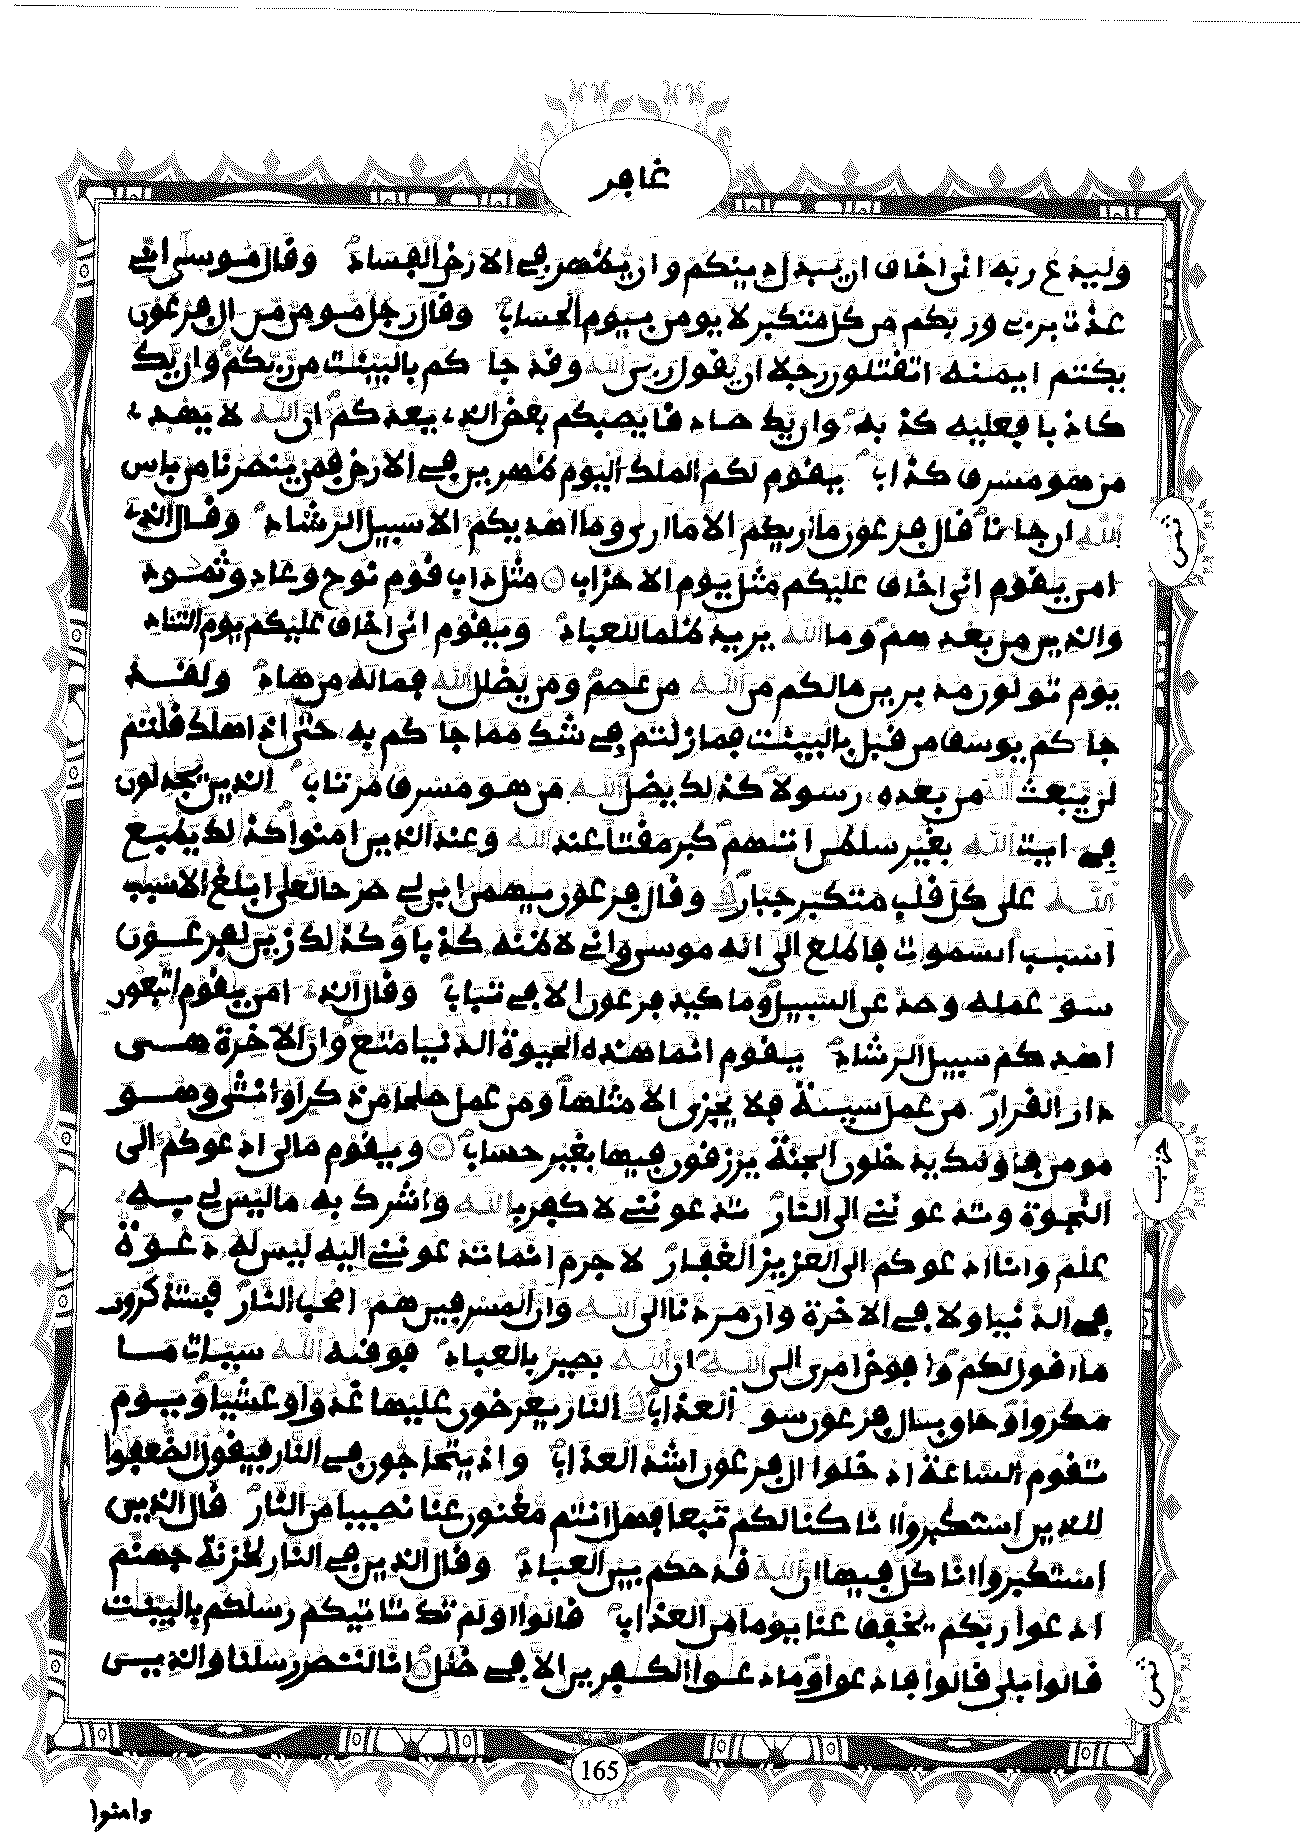 غافر
وليدع ربه إني أخاف أن يبدل دينكم وأن يظهر في الأرض الفساد وقال موسى إني
عذت بربي وربكم من كل متكبر لا يومن بيوم الحساب وقال رجل مومن من ال فرعون
يكتم إيمنه أتقتلون رجلا أن يقول ربي الله وقد جاكم بالبينت من ربكم وإن يك
كاذبا فعليه كذبه وإن يك صادقا يصبكم بعض الذي يعدكم إن الله لا يهدي
من هو مسرف كذاب يقوم لكم الملك اليوم ظهرين في الأرض فمن ينصرنا من باس
الله إن جانا قال فرعون ما أريكم إلا ما أرى وما أهديكم إلا سبيل الرشاد وقال الذي
امن يقوم إني أخاف عليكم مثل يوم الأحزاب مثل داب قوم نوح وعاد وثمود
والذين من بعدهم وما الله يريد ظلما للعباد ويقوم إني أخاف عليكم يوم التناد
يوم تولون مدبرين ما لكم من الله من عصم ومن يضلل الله فما له من هاد ولقد
جاكم يوسف من قبل بالبينت فما زلتم في شك مما جاكم به حتى إذا هلك قلتم
لن يبعث الله من بعده رسولا كذلك يضل الله من هو مسرف مرتاب الذين يجدلون
في ايت الله بغير سلطن أتيهم كبر مقتا عند الله وعند الذين امنوا كذلك يطبع
الله على كل قلب متكبر جبار وقال فرعون يهمن ابن لي صرحا لعلي أبلغ الأسبب
أسبب السموت فأطلع إلى إله موسى وإني لأظنه كذبا وكذلك زين لفرعون
سو عمله وصد عن السبيل وما كيد فرعون إلا في تباب وقال الذي امن يقوم اتبعون
أهدكم سبيل الرشاد يقوم إنما هذه الحيوة الدنيا متع وإن الأخرة هي
دار القرار من عمل سيئة فلا يجزى إلا مثلها ومن عمل صلحا من ذكر أو أنثى وهو
مومن فأولئك يدخلون الجنة يرزقون فيها بغير حساب ويقوم مالي أدعوكم إلى
النجوة وتدعونني إلى النار تدعونني لأكفر بالله وأشرك به ما ليس لي به
علم وأنا أدعوكم إلى العزيز الغفار لا جرم أنما تدعونني إليه ليس له دعوة
في الدنيا ولا في الأخرة وأن مردنا إلى الله وأن المسرفين هم أصحب النار فستذكرون
ما أقول لكم وأفوض أمري إلى الله إن الله بصير بالعباد فوقيه الله سيات ما
مكروا وحاق بال فرعون سو العذاب النار يعرضون عليها غدوا وعشيا ويوم
تقوم الساعة أدخلوا ال فرعون أشد العذاب وإذ يتحاجون في النار فيقول الضعفوا
للذين استكبروا إنا كنا لكم تبعا فهل أنتم مغنون عنا نصيبا من النار قال الذين
استكبروا إنا كل فيها إن الله قد حكم بين العباد وقال الذين في النار لخزنة جهنم
ادعوا ربكم يخفف عنا يوما من العذاب قالوا أولم تك تاتيكم رسلكم بالبينت
قالوا بلى قالوا فادعوا وما دعوا الكفرين إلا في ضلل إنا لننصر رسلنا والذين
ثمن
حزب
ثمن
165
وامنوا